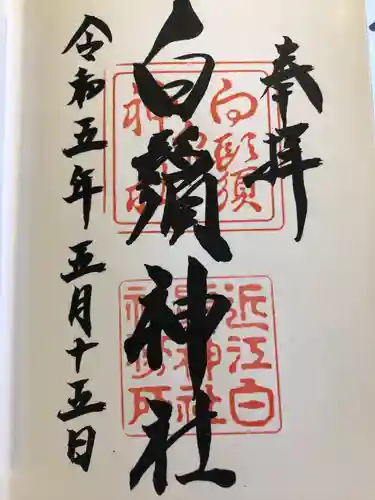 奉拝
白鬚神社
令和五年五月十五日
白鬚
神
近江白
鬚神社
社務所